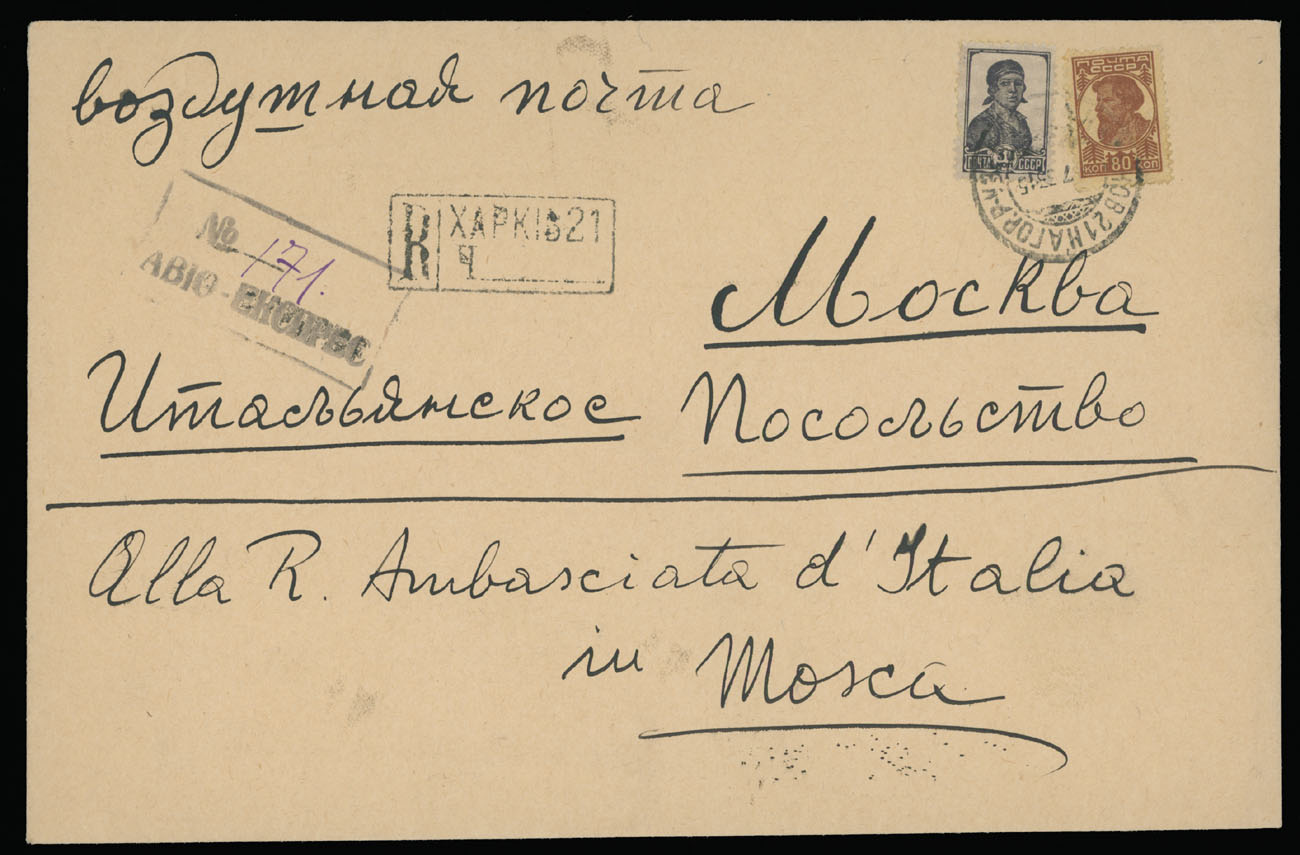 воздушная почта
ПОЧТА
СССР
ПОЧТА СССР
КОП 80 КОП
R ХАРКІВ 21
Ч
№ 171.
АВІО-ЕКСПРЕС
Москва
Итальянское Посольство
Alla R. Ambasciata d'Italia
in Mosca